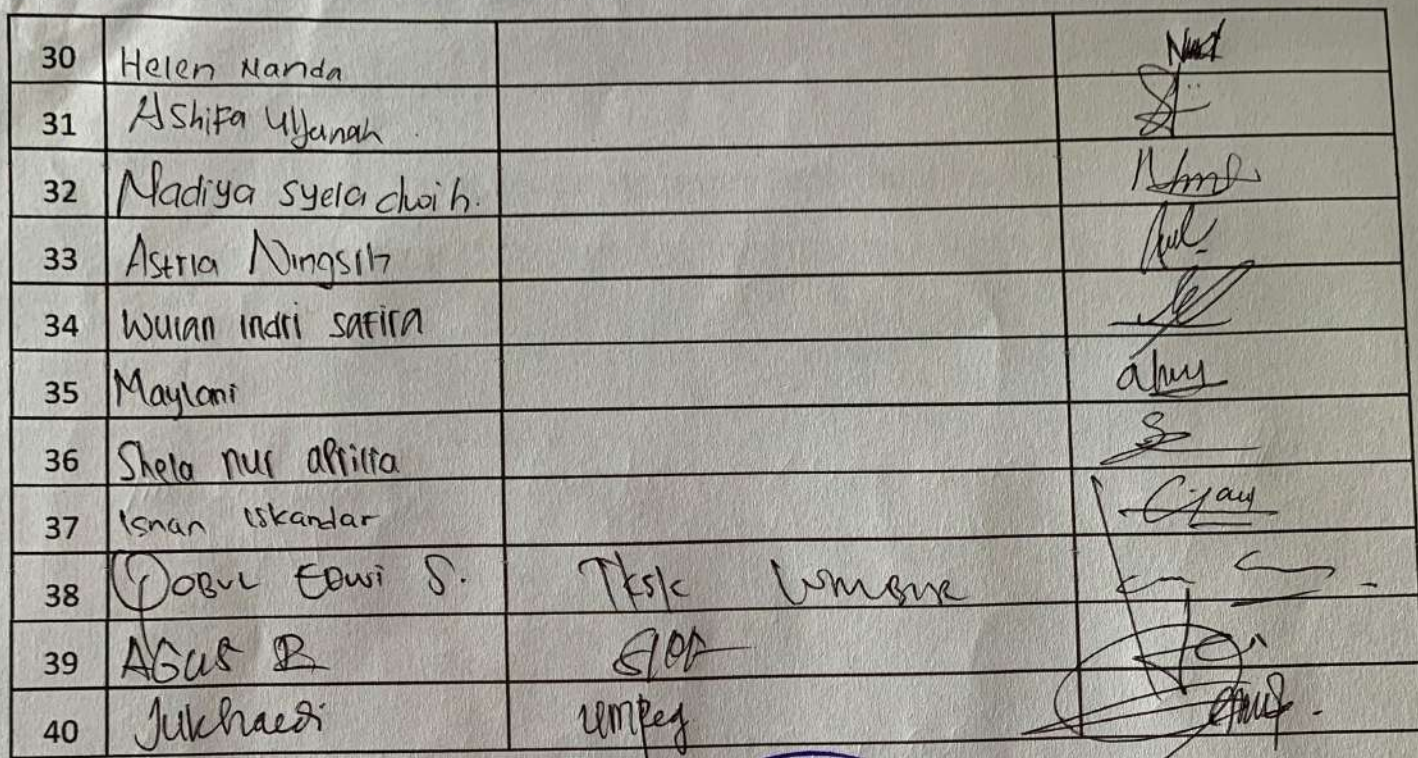 30 Helen Nanda
31 Ashifa Ulyanah
32 Nadiya syela choi h.
33 Astria Ningsih
34 wulan indri safira
35 Maylani
36 Shela nur aprilia
37 Isnan Iskandar
38 Edwi S. Tksk
39 AGUS R
40 Jukhaedi umpeg